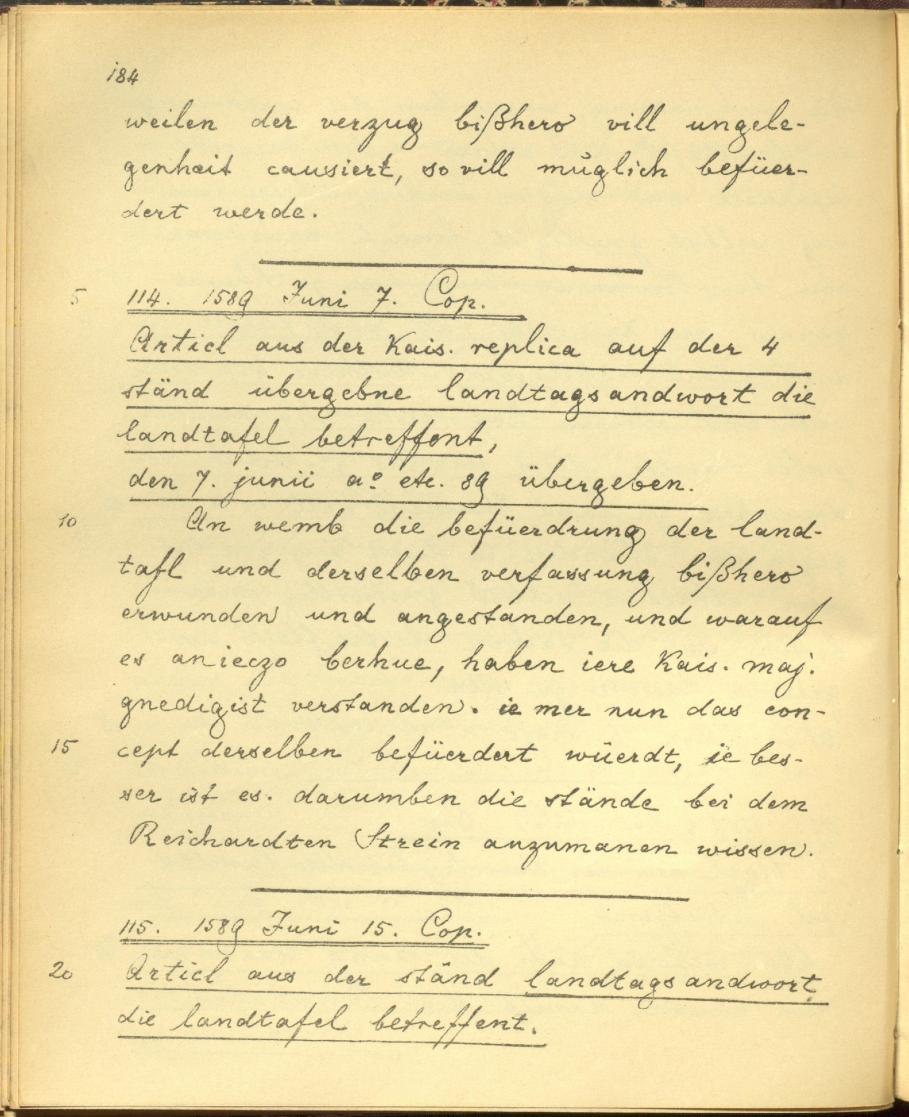 184
weilen der verzug bißhero vill ungele-
genhait causiert, so vill müglich befüer-
dert werde.
5 114. 1589 Juni 7. Cop.
Articl aus der Kais. replica auf der 4
ständ übergebne landtagsandwort die
landtafel betreffent,
den 7. junii aº etc. 89 übergeben.
10 An wemb die befüerdrung der land-
tafl und derselben verfassung bißhero
erwunden und angestanden, und warauf
es anieczo berhue, haben iere Kais. maj.
gnedigist verstanden. ie mer nun das con-
15 cept derselben befüerdert wüerdt, ie bes-
ser ist es. darumben die stände bei dem
Reichardten Strein anzumanen wissen.
115. 1589 Juni 15. Cop.
20 Articl aus der ständ landtagsandwort
die landtafel betreffent.